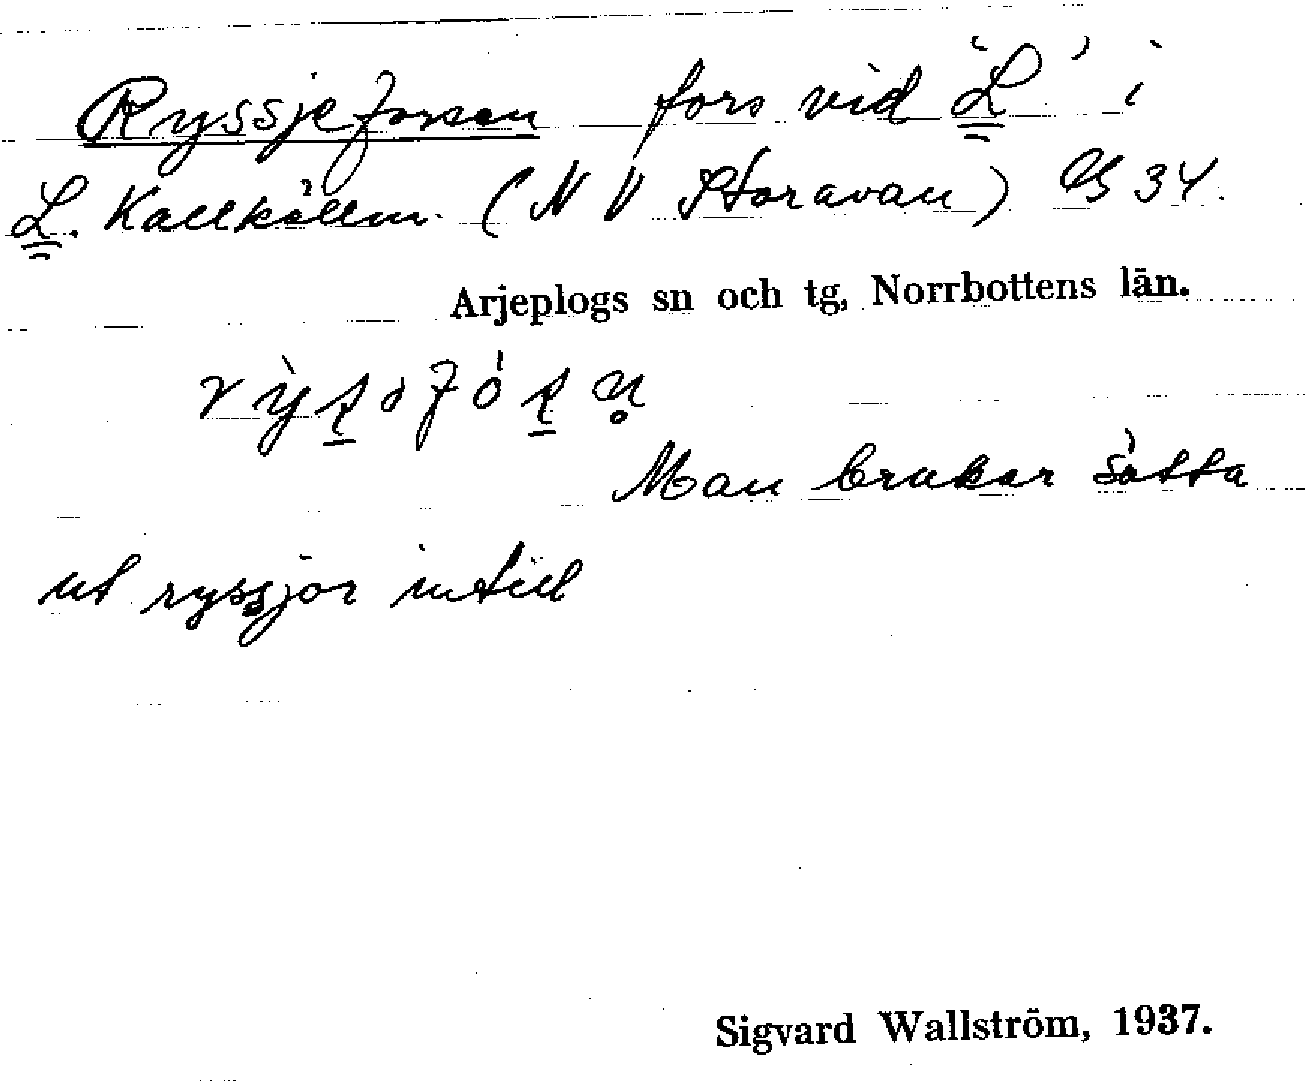 Ryssjeforsen fors vid L i
L. Kallkällm. (N V Storavan) G 34.
Arjeplogs sn och tg, Norrbottens län.
Man brukar sätta
ut ryssjor intill
Sigvard Wallström, 1937.